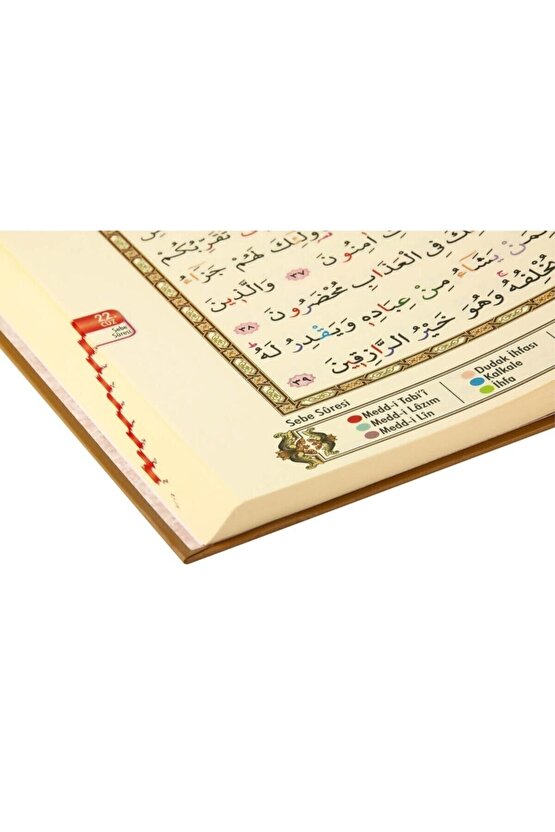 تُقَرِّبُكُمْ
لَهُمْ جَزَٓاءُ
اٰمِنُونَ ﴿٣٧﴾ وَالَّذ۪ينَ
فِي الْعَذَابِ مُحْضَرُونَ ﴿٣٨﴾
يَشَٓاءُ مِنْ عِبَادِه۪ وَيَقْدِرُ لَهُۜ
يُخْلِفُهُۚ وَهُوَ خَيْرُ الرَّازِق۪ينَ ﴿٣٩﴾
22.
CÜZ
Sebe
Sûresi
Sebe Sûresi
Medd-i Tabi'î
Medd-i Lâzım
Medd-i Lîn
Dudak İhfası
Kalkale
İhfa